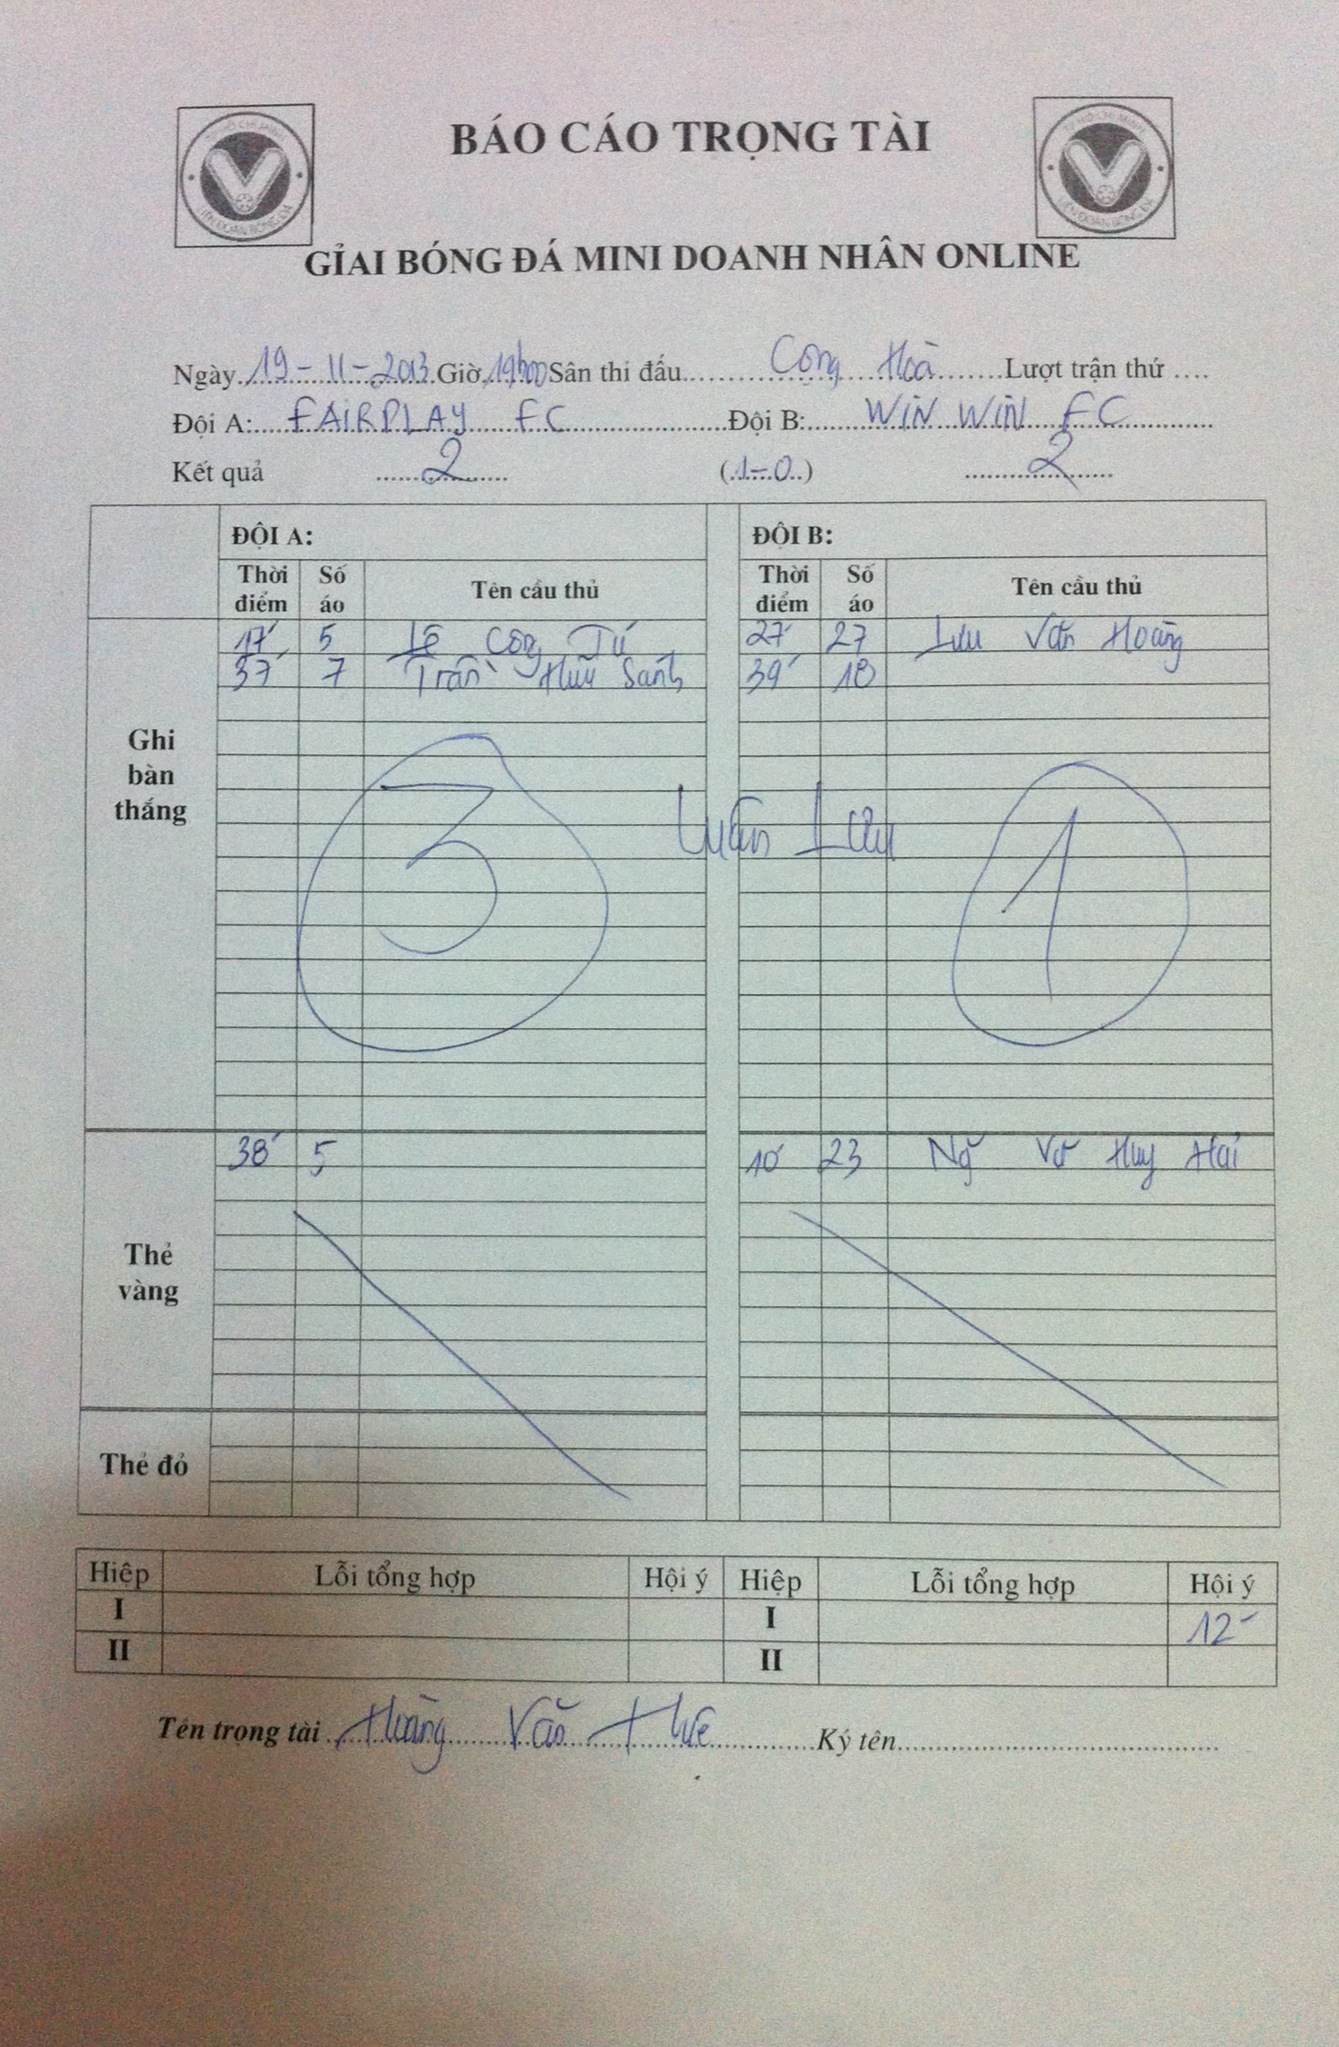 BÁO CÁO TRỌNG TÀI
GỈAI BÓNG ĐÁ MINI DOANH NHÂN ONLINE
Ngày 19-11-2013 Giờ 19h00 Sân thi đấu Cộng Hoà Lượt trận thứ ....
Đội A: FAIRPLAY FC Đội B: WIN WIN FC
Kết quả 2 (1-0) 2
ĐỘI A: ĐỘI B:
Thời điểm Số áo Tên cầu thủ Thời điểm Số áo Tên cầu thủ
Ghi bàn thắng
17' 5 Lê Công Tú 27' 27 Lưu Văn Hoàng
37' 7 Trần Hữu Sanh 39' 18
3 Luân Lưu 1
Thẻ vàng
38' 5 10' 23 Ng Huy Hai
Thẻ đỏ
Hiệp Lỗi tổng hợp Hội ý Hiệp Lỗi tổng hợp Hội ý
I I 12'
II II
Tên trọng tài Hoàng Văn Ký tên